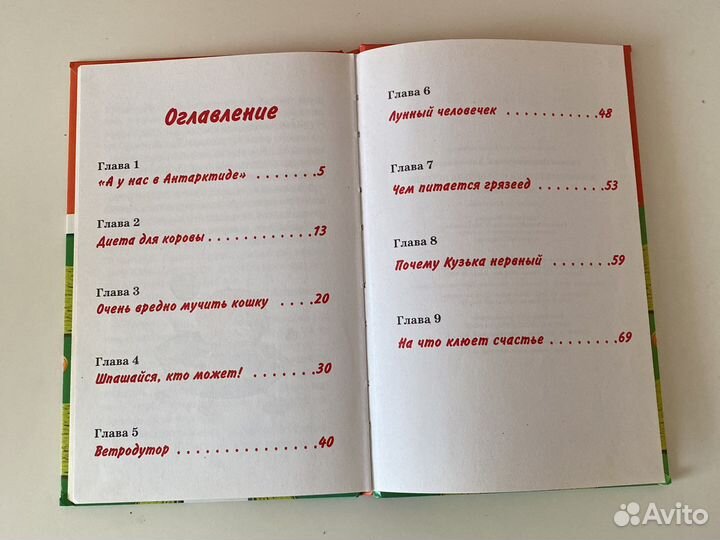 Оглавление
Глава 1
«А у нас в Антарктиде» . . . . . . .5
Глава 2
Диета для коровы . . . . . . . . . . . .13
Глава 3
Очень вредно мучить кошку . . . .20
Глава 4
Шпашайся, кто может! . . . . . . . .30
Глава 5
Ветродутор . . . . . . . . . . . . . . . . .40
Глава 6
Лунный человечек . . . . . . . . . . .48
Глава 7
Чем питается грязеед . . . . . . . . .53
Глава 8
Почему Кузька нервный . . . . . . .59
Глава 9
На что клюет счастье . . . . . . . . .69
Avito